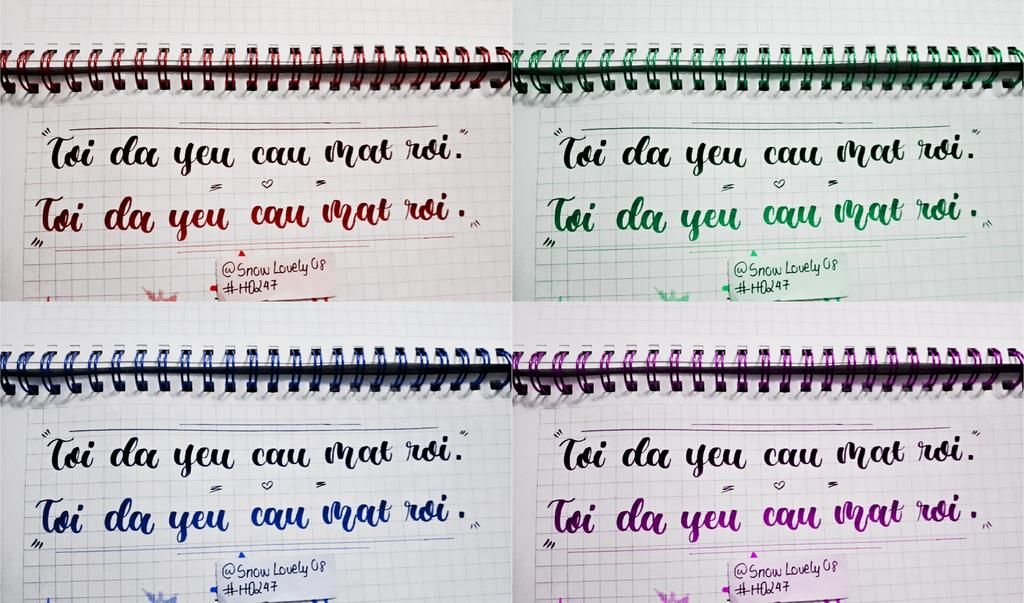 "Toi da yeu cau mat roi."
Toi da yeu cau mat roi.
@Snow Lovely 08
#HD247
"Toi da yeu cau mat roi."
Toi da yeu cau mat roi.
@Snow Lovely 08
#HD247
"Toi da yeu cau mat roi."
Toi da yeu cau mat roi.
@Snow Lovely 08
#HD247
"Toi da yeu cau mat roi."
Toi da yeu cau mat roi.
@Snow Lovely 08
#HD247